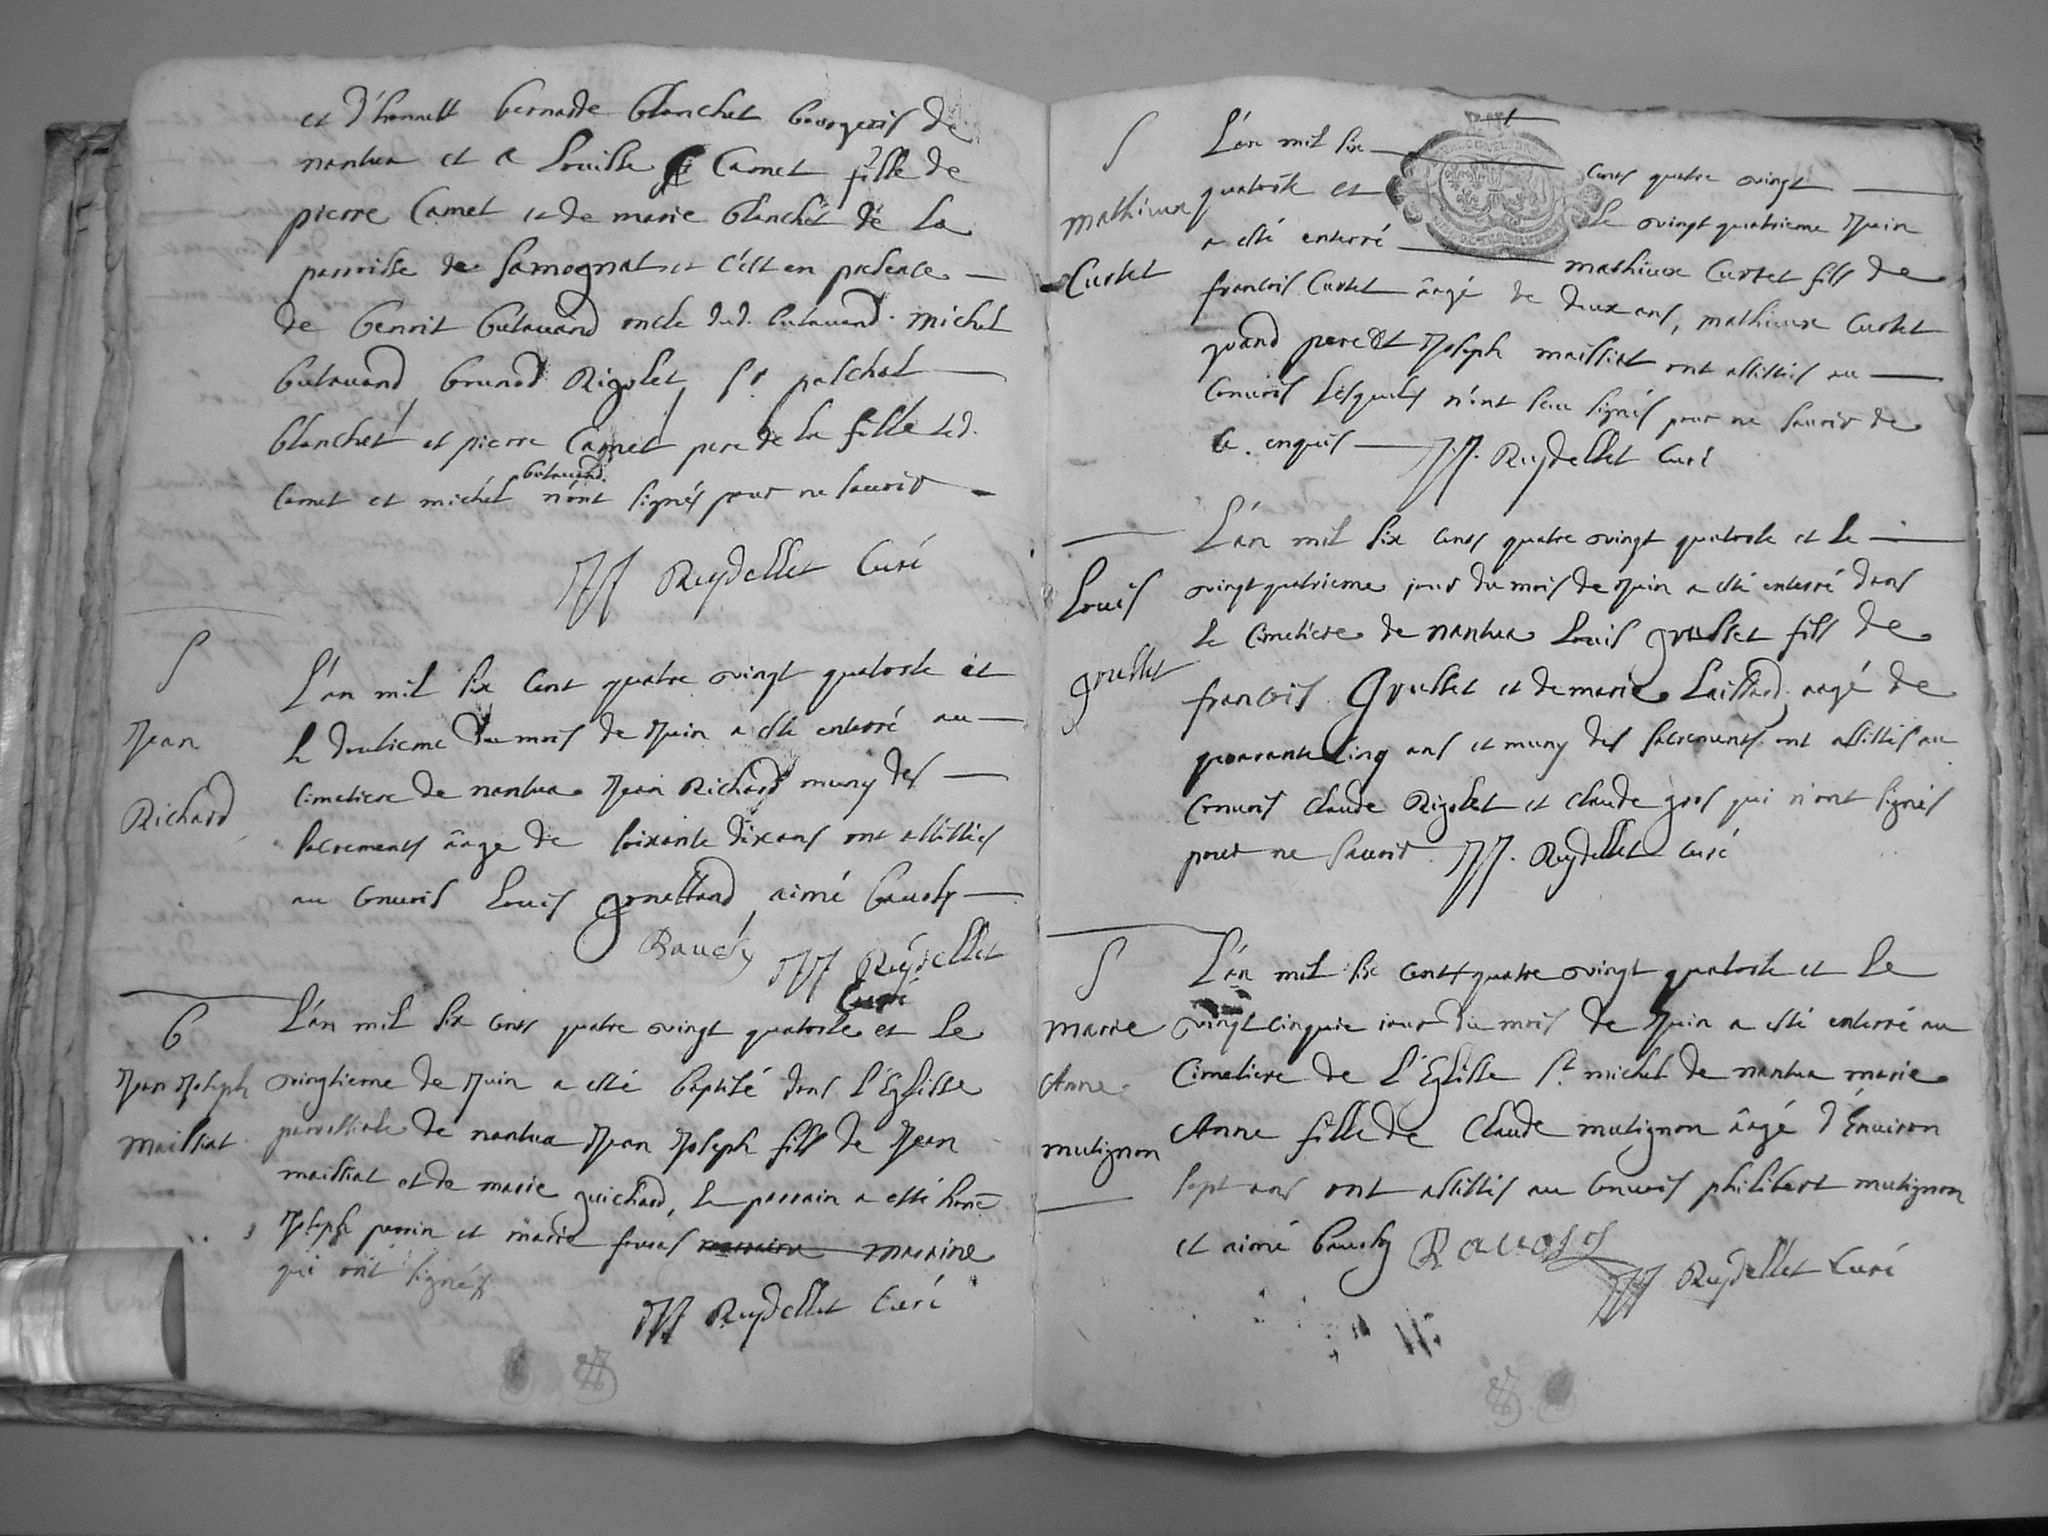 et d'honnett bernarde blanchet bourgeois de
nantua et a Louisse Camet fille de
pierre Camet et de marie blanchet de la
parroisse de Samognat et c'est en presence
de benoit butavand oncle dud. butavand. michel
butavand brunod Rigolet, Sr paschal
blanchet et pierre Camet pere de la fille led.
Camet et michel butavand. n'ont signés pour ne scavoir
Reydellet Curé
S
Jean
Richard
L'an mil six cent quatre vingt quatorse et
le dousieme du mois de Juin a esté enterré au
Cimetiere de nantua Jean Richard muny des
sacrements âage de soixante dix ans ont assistés
au convois Louis aimé baudy
Baudy Reydellet
Curé
B
Jean Joseph
maissiat
L'an mil six cens quatre vingt quatorse et le
vingtieme de Juin a esté baptisé dans l'Eglisse
parossiale de nantua Jean Joseph fils de Jean
maissiat et de marie guichard, le parrain a esté
Joseph perrin et marie marraine maraine
qui ont signés
Reydellet Curé
S
mathieux
Curtet
L'an mil six cens quatre vingt
quatorse et le vingt quatrieme Juin
a esté enterré mathieux Curtet fils de
francois Curtet âagé de deux ans, mathieux Curtet
grand pere et Joseph maissiat ont assistés au
Convois lesquels n'ont sceu signés pour ne scavoir de
ce enquis J.J. Reydellet Curé
Louis
grusset
L'an mil six cens quatre vingt quatorse et le
vingt quatrieme jour du mois de Juin a esté enterré dans
le cimetiere de nantua Louis grusset fils de
francois Grusset et de marie aagé de
quarante cinq ans et muny des sacrements ont assistés au
Convois Claude Rigolet et Claude gros qui n'ont signés
pour ne scavoir. Reydellet curé
S
Marie
Anne
mutignon
L'an mil six cent quatre vingt quatorse et le
vingt cinquie jour du mois de Juin a esté enterré au
Cimetiere de l'Eglisse St michel de nantua marie
Anne fille de Claude mutignon âagé d'Environ
sept ans ont assistés au Convois philibert mutignon
et aimé baudy Reydellet Curé